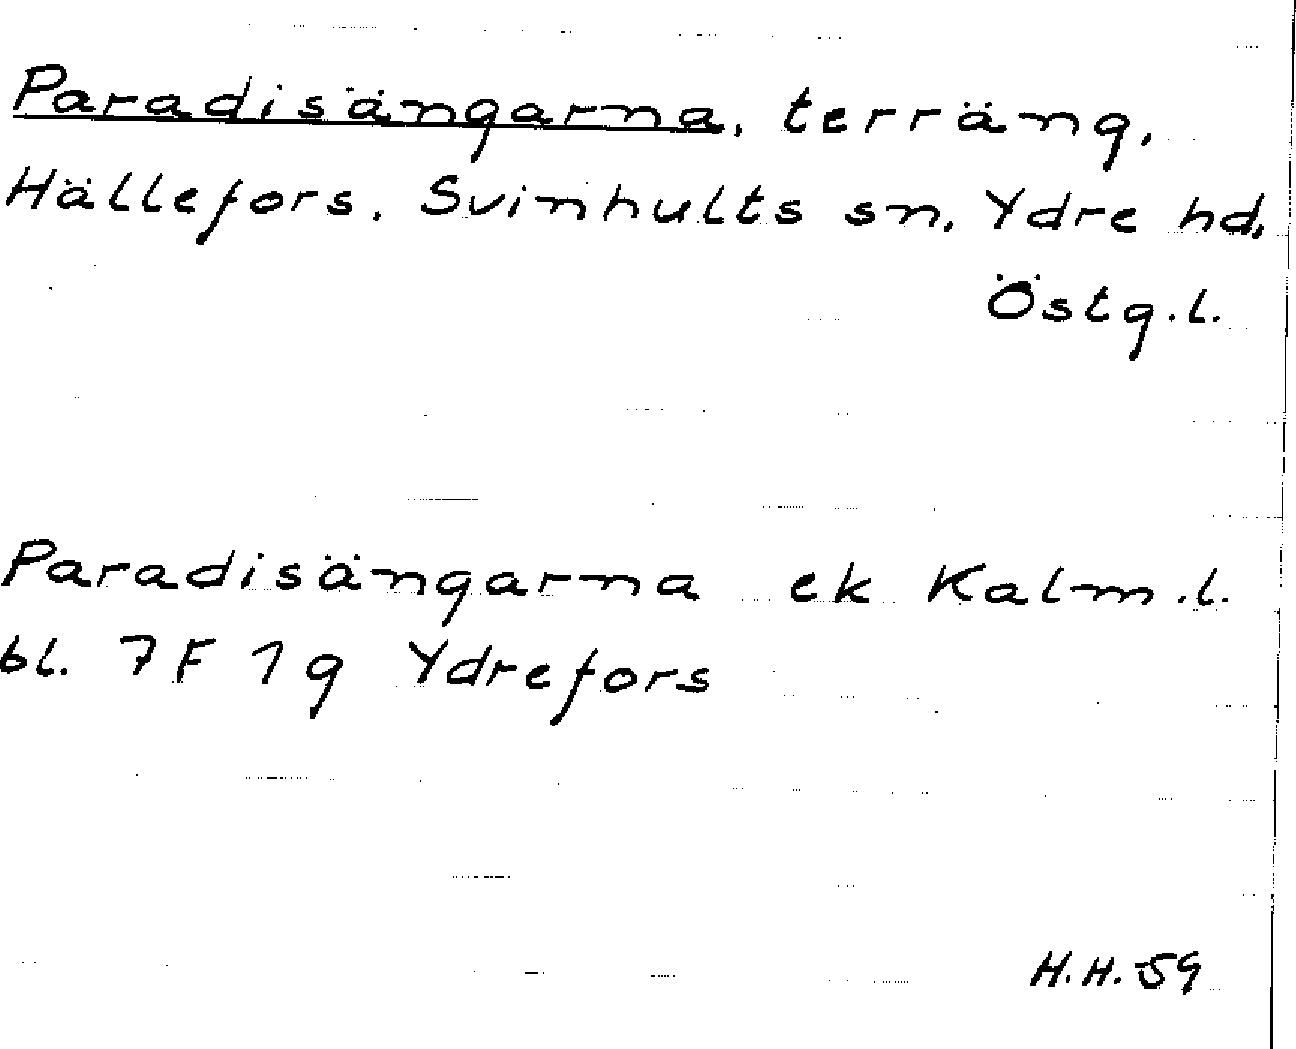 Paradisängarna, terräng,
Hällefors. Svinhults sn. Ydre hd,
Östg.l.
Paradisängarna ek Kalm.l.
bl. 7F 1g Ydrefors
H.H.59